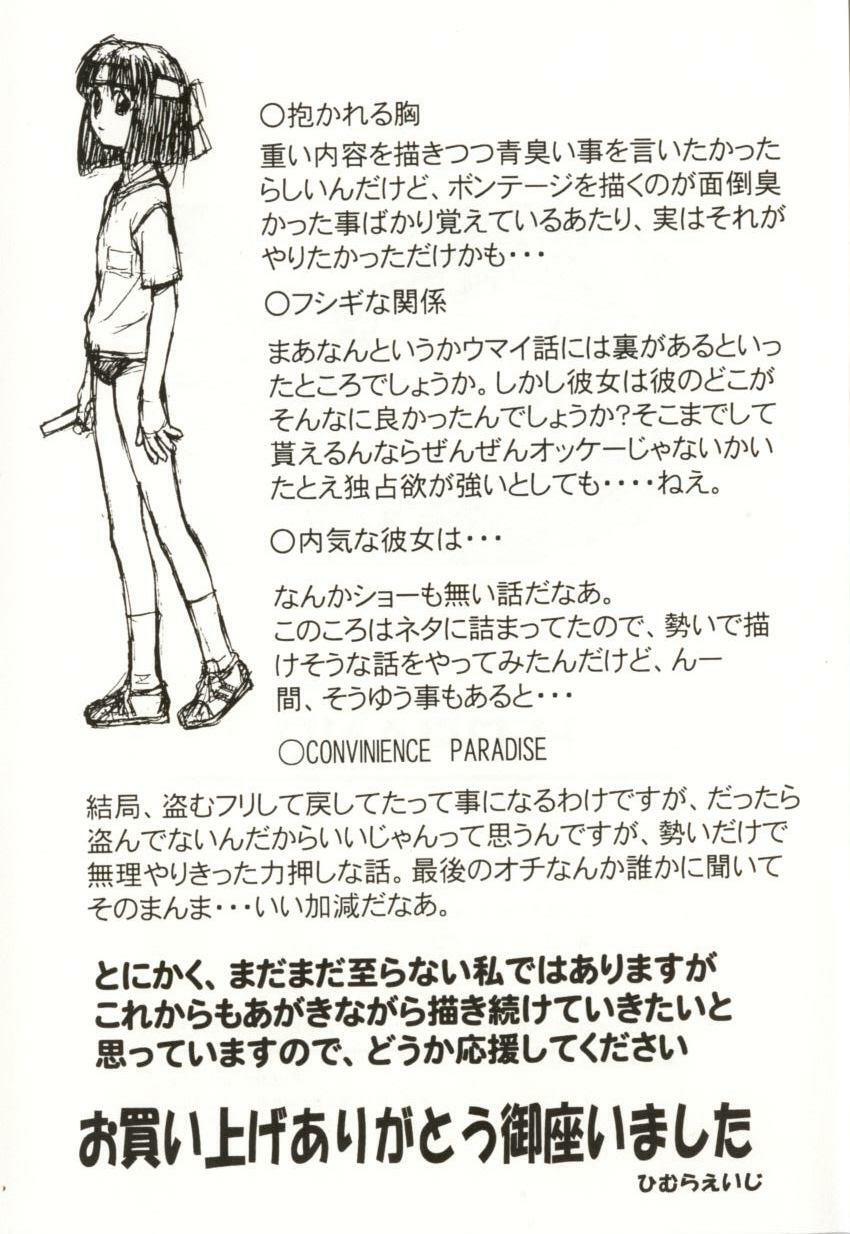 ○抱かれる胸
重い内容を描きつつ青臭い事を言いたかった
らしいんだけど、ボンテージを描くのが面倒臭
かった事ばかり覚えているあたり、実はそれが
やりたかっただけかも・・・
○フシギな関係
まあなんというかウマイ話には裏があるといっ
たところでしょうか。しかし彼女は彼のどこが
そんなに良かったんでしょうか?そこまでして
貰えるんならぜんぜんオッケーじゃないかい
たとえ独占欲が強いとしても・・・・ねえ。
○内気な彼女は・・・
なんかショーも無い話だなあ。
このころはネタに詰まってたので、勢いで描
けそうな話をやってみたんだけど、んー
間、そうゆう事もあると・・・
○CONVINIENCE PARADISE
結局、盗むフリして戻してたって事になるわけですが、だったら
盗んでないんだからいいじゃんって思うんですが、勢いだけで
無理やりきった力押しな話。最後のオチなんか誰かに聞いて
そのまんま・・・いい加減だなあ。
とにかく、まだまだ至らない私ではありますが
これからもあがきながら描き続けていきたいと
思っていますので、どうか応援してください
お買い上げありがとう御座いました
ひむらえいじ